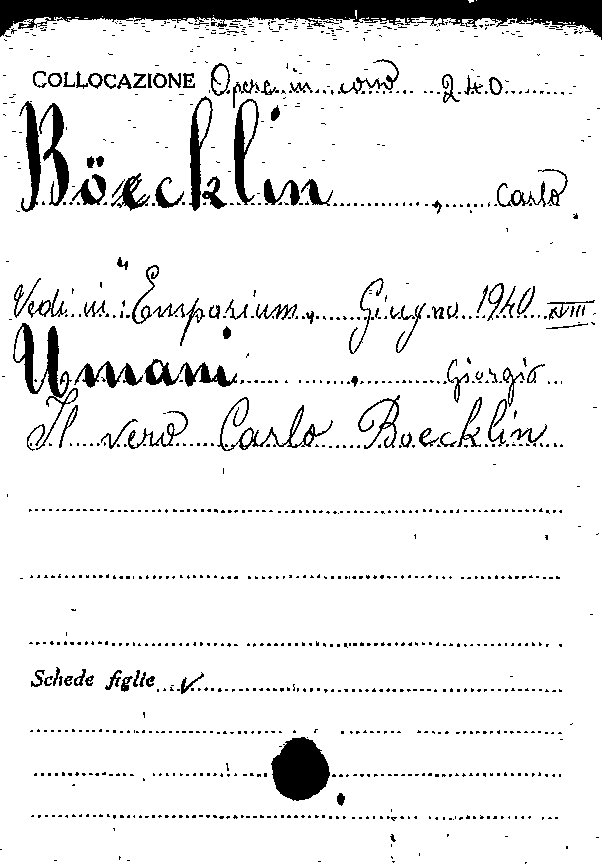 COLLOCAZIONE Opera in corso 240
Böecklin, Carlo
Vedi in: "Emporium, Giugno 1940 XVIII
Umani, Giorgio
Il vero Carlo Boecklin
Schede figlie ✓